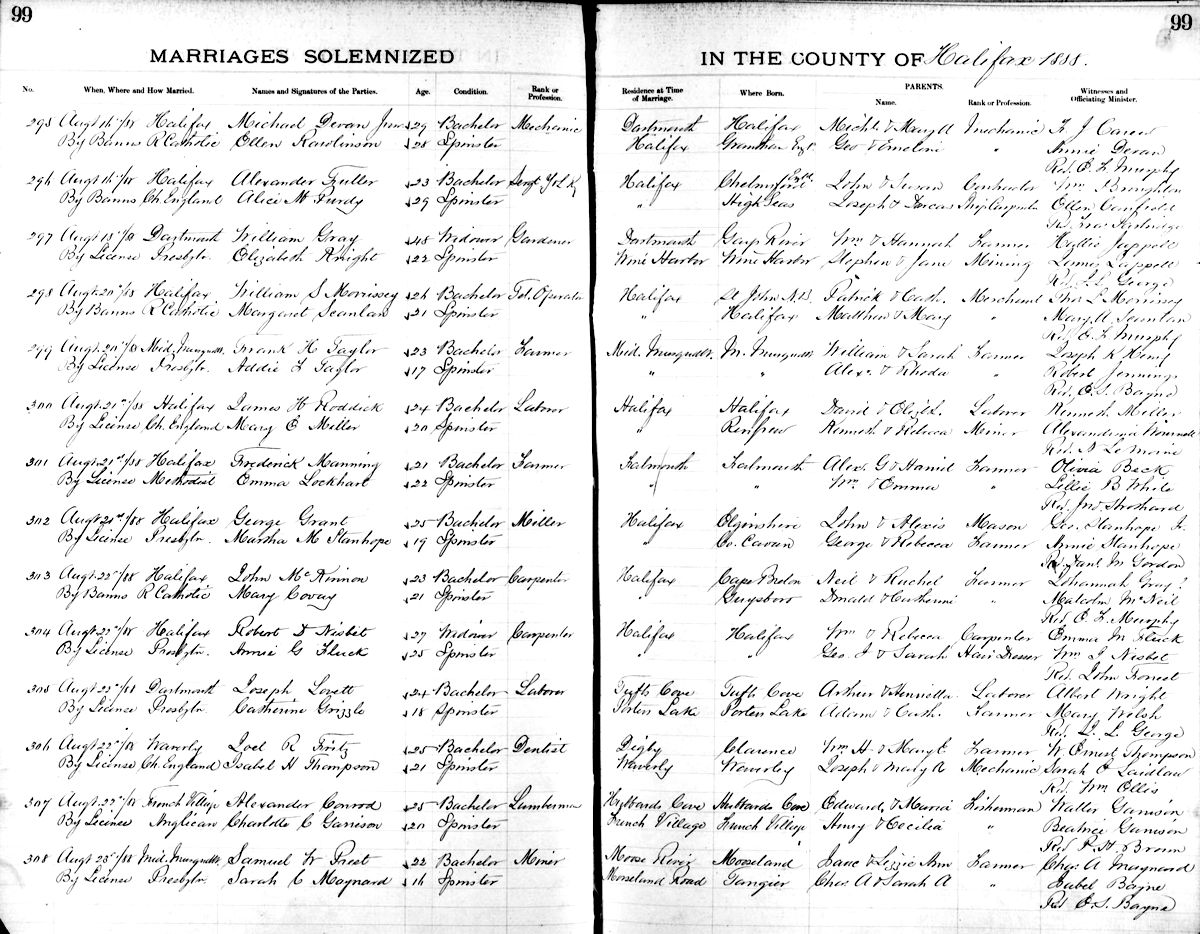 99
99
MARRIAGES SOLEMNIZED
IN THE COUNTY OF Halifax 1888.
No. When, Where and How Married. Names and Signatures of the Parties. Age. Condition. Rank or Profession. Residence at Time of Marriage. Where Born. PARENTS. Name. Rank or Profession. Witnesses and Officiating Minister.
295 Augt 16th/88 Halifax Michael Devan Junr 29 Bachelor Mechanic Dartmouth Halifax Michl & Mary A Mechanic F J Carew
By Banns R Catholic Ellen Rawlinson 28 Spinster Halifax Grantham Engt. Geo & " Annie Devan
Rev. E. F. Murphy
296 Augt 16th/88 Halifax Alexander Fuller 23 Bachelor Sergt Halifax Chelmsford Engd. John & Susan Wm Broughton
By Banns Ch England Alice M Purdy 29 Spinster " High Seas Joseph & Dorcas Ship Carpenter Ellen
Rev. Partridge
297 Augt 18th/88 Dartmouth William Gray 48 Widower Gardener Dartmouth Gays River Wm & Hannah Farmer
By License Presbytn. Elizabeth Knight 22 Spinster Wine Harbor Wine Harbor Stephen & Jane Mining
Rev. L. L. George
298 Augt 20th/88 Halifax William S Morrissey 26 Bachelor Tel. Operator Halifax St John N.B. Patrick & Cath. Merchant Thos L Morrissey
By Banns R Catholic Margaret Scanlan 21 Spinster " Halifax Matthew & Mary " Mary A Scanlan
Rev. E. F. Murphy
299 Augt 20th/88 Mid. Musquodt. Frank H Taylor 23 Bachelor Farmer Mid. Musquodt. M. Musquodt William & Sarah Farmer Joseph K Henry
By License Presbytn. Addie F Taylor 17 Spinster " " Alex. & Rhoda Robert Jennings
Rev. E. S. Bayne
300 Augt 21st/88 Halifax James H Roddick 24 Bachelor Laborer Halifax Halifax David & Eliz. L. Laborer Kenneth Miller
By License Ch. England Mary E Miller 20 Spinster " Renfrew Kenneth & Rebecca Miner Alexandina
Rev. N LeMoine
301 Augt 21st/88 Halifax Frederick Manning 21 Bachelor Farmer Falmouth Falmouth Alex. G & Farmer Olivia Beck
By License Methodist Emma Lockhart 22 Spinster " " Wm & Emma " Lillie B White
Rev. Jno
302 Augt 21st/88 Halifax George Grant 25 Bachelor Miller Halifax Elginshire John & Alexis Mason Geo. Stanhope Jr.
By License Presbytn. Martha M Stanhope 19 Spinster " Co. Cavan George & Rebecca Farmer Annie Stanhope
Rev. M Gordon
303 Augt 22nd/88 Halifax John McKinnon 23 Bachelor Carpenter Halifax Cape Breton Neil & Rachel Farmer Johannah Gray?
By Banns R Catholic Mary Covay 21 Spinster " Guysboro Donald & Catherine " Malcolm McNeil
Rev. E. F. Murphy
304 Augt 22nd/88 Halifax Robert D Nisbet 27 Widower Carpenter Halifax Halifax Wm & Rebecca Carpenter Emma M Fluck
By License Presbytn. Annie G Fluck 25 Spinster " " Geo. J & Sarah Hair Dresser Wm J Nisbet
Rev. John Forrest
305 Augt 22nd/88 Dartmouth Joseph Lovett 24 Bachelor Laborer Tufts Cove Tufts Cove Arthur & Henrietta Laborer Albert Wright
By License Presbytn. Catherine Grizzle 18 Spinster Porters Lake Porters Lake Adam & Cath. Farmer Mary Welsh
Rev. L. L. George
306 Augt 22nd/88 Waverly Joel R Fritz 25 Bachelor Dentist Digby Clarence Wm H. & Mary E. Farmer W Ernest Thompson
By License Ch. England Isabel H Thompson 21 Spinster Waverly Waverley Joseph & Mary A Mechanic Sarah E Laidlaw
Rev. Wm Ellis
307 Augt 22nd/88 French Village Alexander Conrod 25 Bachelor Lumberman Hubbards Cove Hubbards Cove Edward & Maria Fisherman Walter Garrison
By License Anglican Charlotte C Garrison 20 Spinster French Village French Village Henry & Cecilia " Beatrice Garrison
Rev. Brown
308 Augt 23rd/88 Mid. Musquodt. Samuel W Prest 22 Bachelor Miner Moose River Mooseland Isaac & Lizzie Ann Farmer Chas. A Maynard
By License Presbytn. Sarah C Maynard 16 Spinster Mooseland Road Tangier Chas. A & Sarah A " Isabel Bayne
Rev. E. S. Bayne